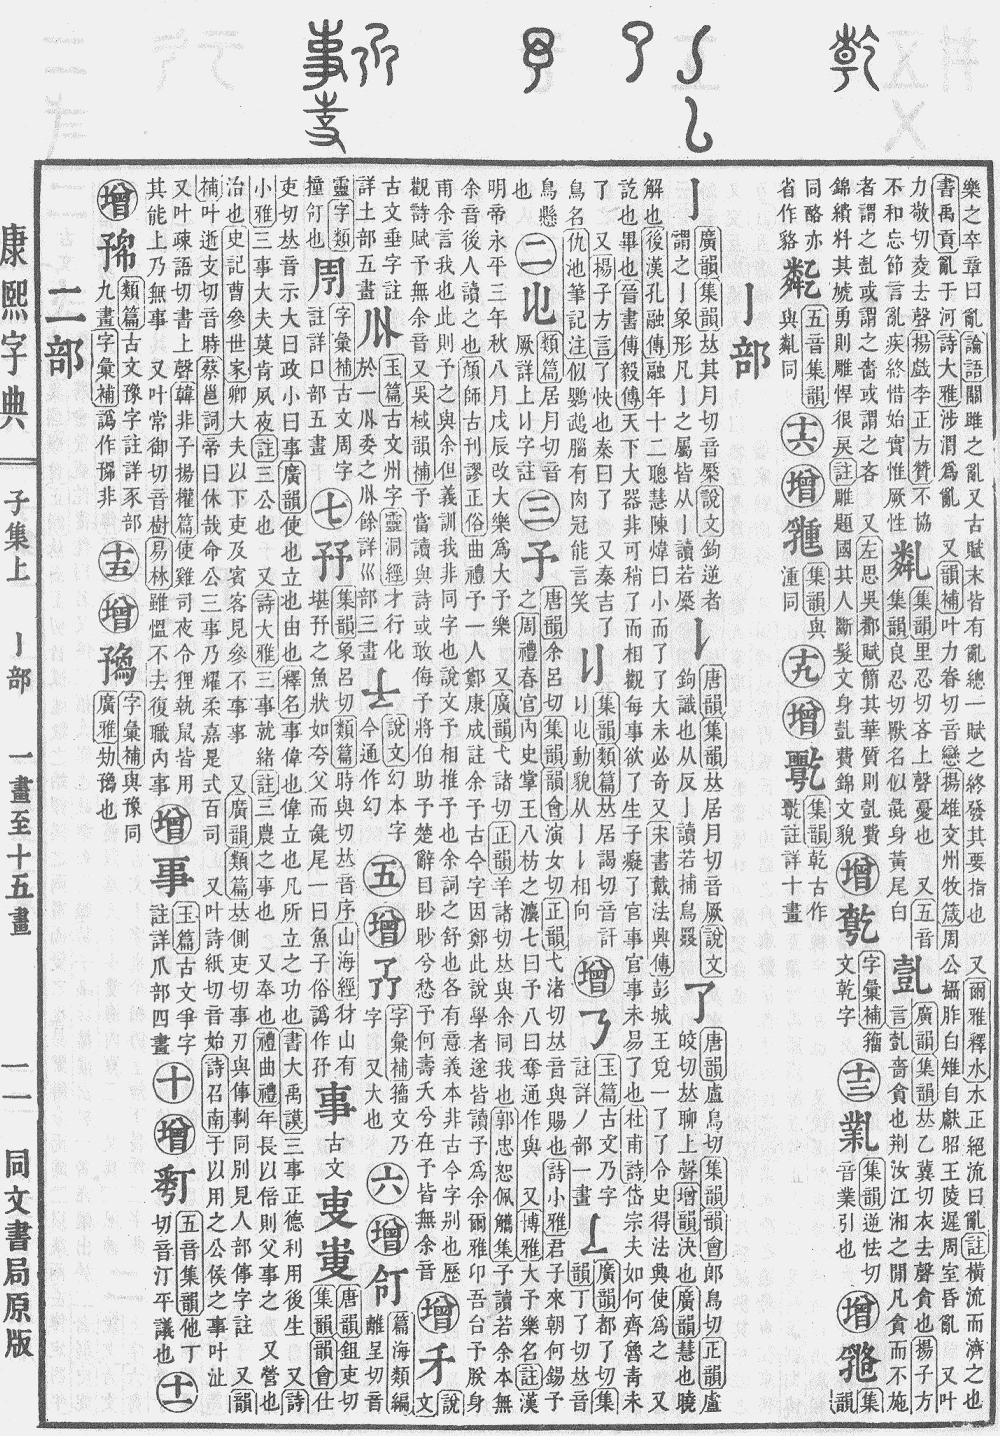 樂之卒章曰亂論語關雎之亂又古賦末皆有亂總一賦之終發其要指也 又爾雅釋水水正絕流曰亂註橫流而濟之也
書禹貢亂于河詩大雅涉渭爲亂 又韻補叶力眷切音戀揚雄交州牧箴周公攝胙白雉自獻昭王陵遲周室昏亂 又叶
力敬切夌去聲楊戲李正方贊不協
不和忘節言亂疾終惜始實惟厥性
亃
集韻里忍切吝上聲憂也 又五音
集韻良忍切獸名似彘身黃尾白
亄
廣韻集韻𠀤乙冀切衣去聲貪也揚子方
言亄嗇貪也荆汝江湘之閒凡貪而不施
者謂之亄或謂之嗇或謂之吝 又左思吳都賦簡其華質則亄費
錦繢料其虓勇則雕悍很戾註雕題國其人斷髮文身亄費錦文貌
增
字彙補籀
文乾字
十三
集韻逆怯切
音業引也
增
集
韻
同䣖亦
省作貉
五音集韻
與亃同
十六
增
集韻與
湩同
十九
增
集韻乾古作
註詳十畫
亅部
亅
廣韻集韻𠀤其月切音橜說文鉤逆者
謂之亅象形凡亅之屬皆从亅讀若橜
𠄌
唐韻集韻𠀤居月切音厥說文
鉤識也从反亅讀若捕鳥罬
了
唐韻盧鳥切集韻韻會郎鳥切正韻盧
皎切𠀤聊上聲增韻決也廣韻慧也曉
解也後漢孔融傳融年十二聰慧陳煒曰小而了了大未必奇又宋書戴法興傳彭城王覓一了了令史得法興使爲之 又
訖也畢也晉書傅毅傳天下大器非可稍了而相觀每事欲了生子癡了官事官事未易了也杜甫詩岱宗夫如何齊魯靑未
了 又揚子方言了快也秦曰了 又秦吉了
鳥名仇池筆記注似鸚䳇腦有肉冠能言笑
集韻類篇𠀤居謁切音訐
𠄏也動貌从亅亅相向
增
玉篇古文乃字
註詳丿部一畫
廣韻都了切集
韻丁了切𠀤音
鳥懸
也
二
增
類篇居月切音
厥詳上𠄌字註
三
予
唐韻余呂切集韻韻會演女切正韻弋渚切𠀤音與賜也詩小雅君子來朝何錫予
之周禮春官內史掌王八枋之灋七曰予八曰奪通作與 又博雅大予樂名註漢
明帝永平三年秋八月戊辰改大樂爲大予樂 又廣韻弋諸切正韻羊諸切𠀤與余同我也郭忠恕佩觿集予讀若余本無
余音後人讀之也顏師古刊謬正俗曲禮予一人鄭康成註余予古今字因鄭此說學者遂皆讀予爲余爾雅卬吾台予朕身
甫余言我也此則予之與余但義訓我非同字也說文予相推予也余詞之舒也各有意義本非古今字別也歷
觀詩賦予無余音又吳棫韻補予當讀與詩或敢侮予將伯助予楚辭目眇眇兮愁予何壽夭兮在予皆無余音
增
說
文
古文垂字註
詳土部五畫
玉篇古文州字靈洞經才行化
於一𠂢委之𠂢餘詳巛部三畫
說文幻本字
今通作幻
五
增
字彙補籀文乃
字 又大也
六
增
篇海類編
離呈切音
靈字類
撞仃也
字彙補古文周字
註詳口部五畫
七
集韻象呂切類篇時與切𠀤音序山海經犲山有
堪㐨之魚狀如夸父而彘尾一曰魚子俗譌作㐨
事
古文
唐韻鉏吏切
集韻韻會仕
吏切𠀤音示大曰政小曰事廣韻使也立也由也釋名事偉也偉立也凡所立之功也書大禹謨三事正德利用後生 又詩
小雅三事大夫莫肯夙夜註三公也 又詩大雅三事就緒註三農之事也 又奉也禮曲禮年長以倍則父事之 又營也
治也史記曹參世家卿大夫以下吏及賓客見參不事事 又廣韻類篇𠀤側吏切事刃與傳剚同別見人部倳字註 又韻
補叶逝支切音時蔡邕詞帝曰休哉命公三事乃耀柔嘉是式百司 又叶詩紙切音始詩召南于以用之公侯之事叶沚
又叶疎語切書上聲韓非子揚權篇使雞司夜令狸執鼠皆用
其能上乃無事 又叶常御切音樹易林雖慍不去復職內事
增
事
玉篇古文爭字
註詳爪部四畫
十
增
五音集韻他丁
切音汀平議也
十二
增
類篇古文豫字註詳豕部
九畫字彙補譌作㺞非
十五
增
字彙補與豫同
廣雅勃㺞也
二部
康熙字典
子集上
亅部
一畫至十五畫
一一
同文書局原版